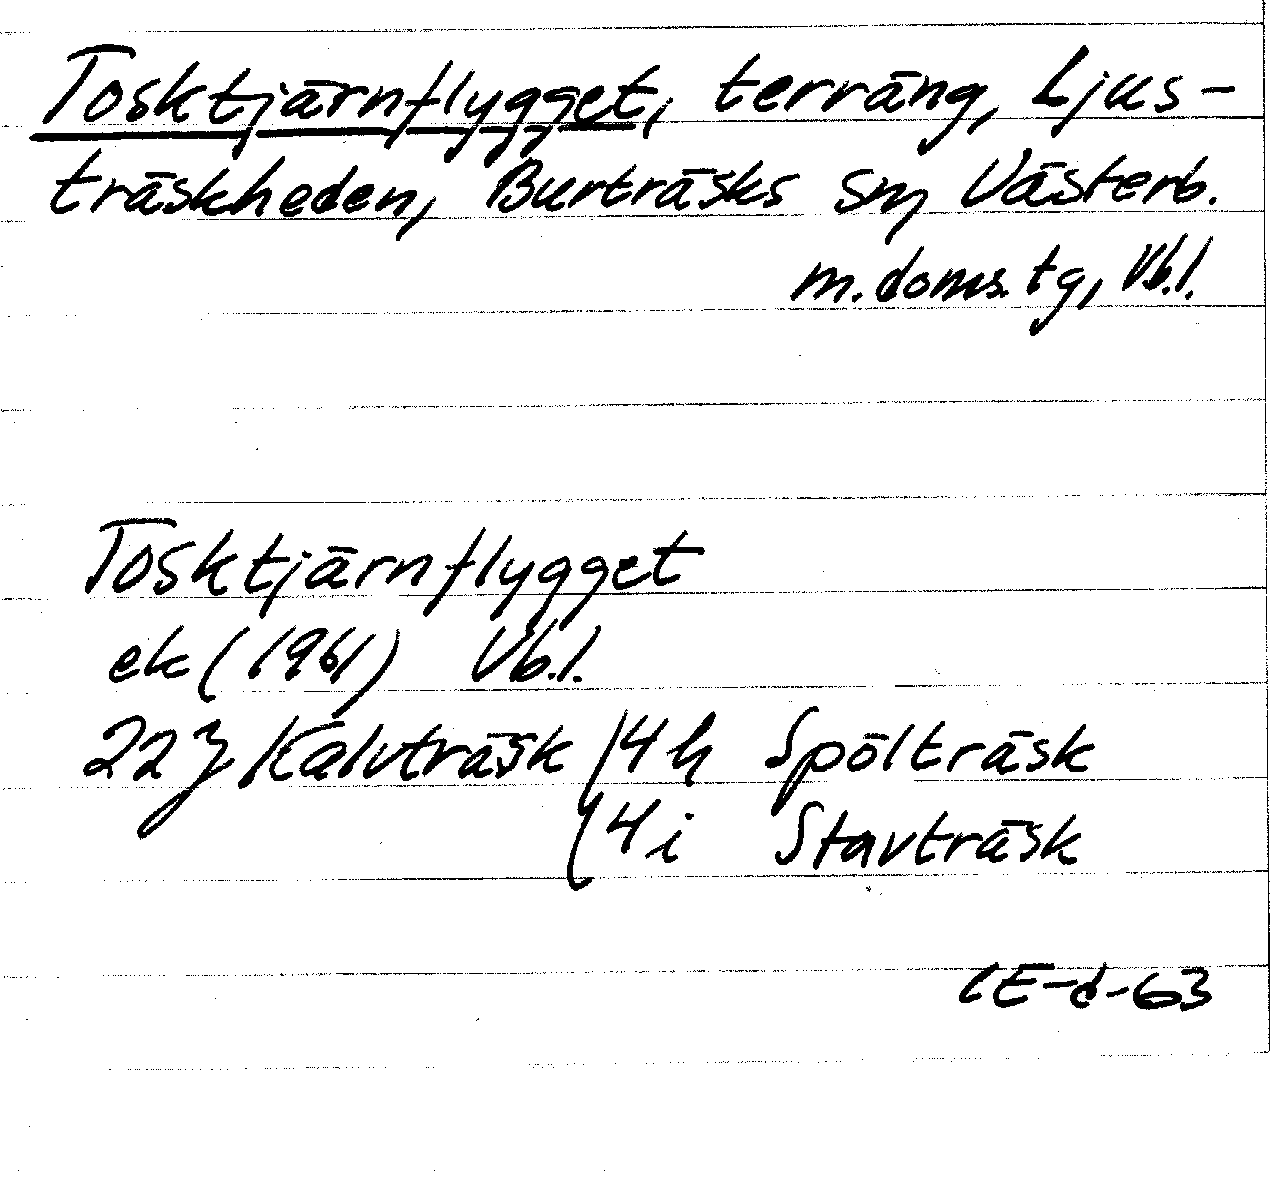 Tosktjärnflygget, terräng, Ljus-
träskheden, Burträsks sn, Västerb.
m. doms. tg, Vb.l.
Tosktjärnflygget
ek (1961) Vb.l.
22J Kalvträsk /4h Spölträsk
(4i Stavträsk
CE-d-63